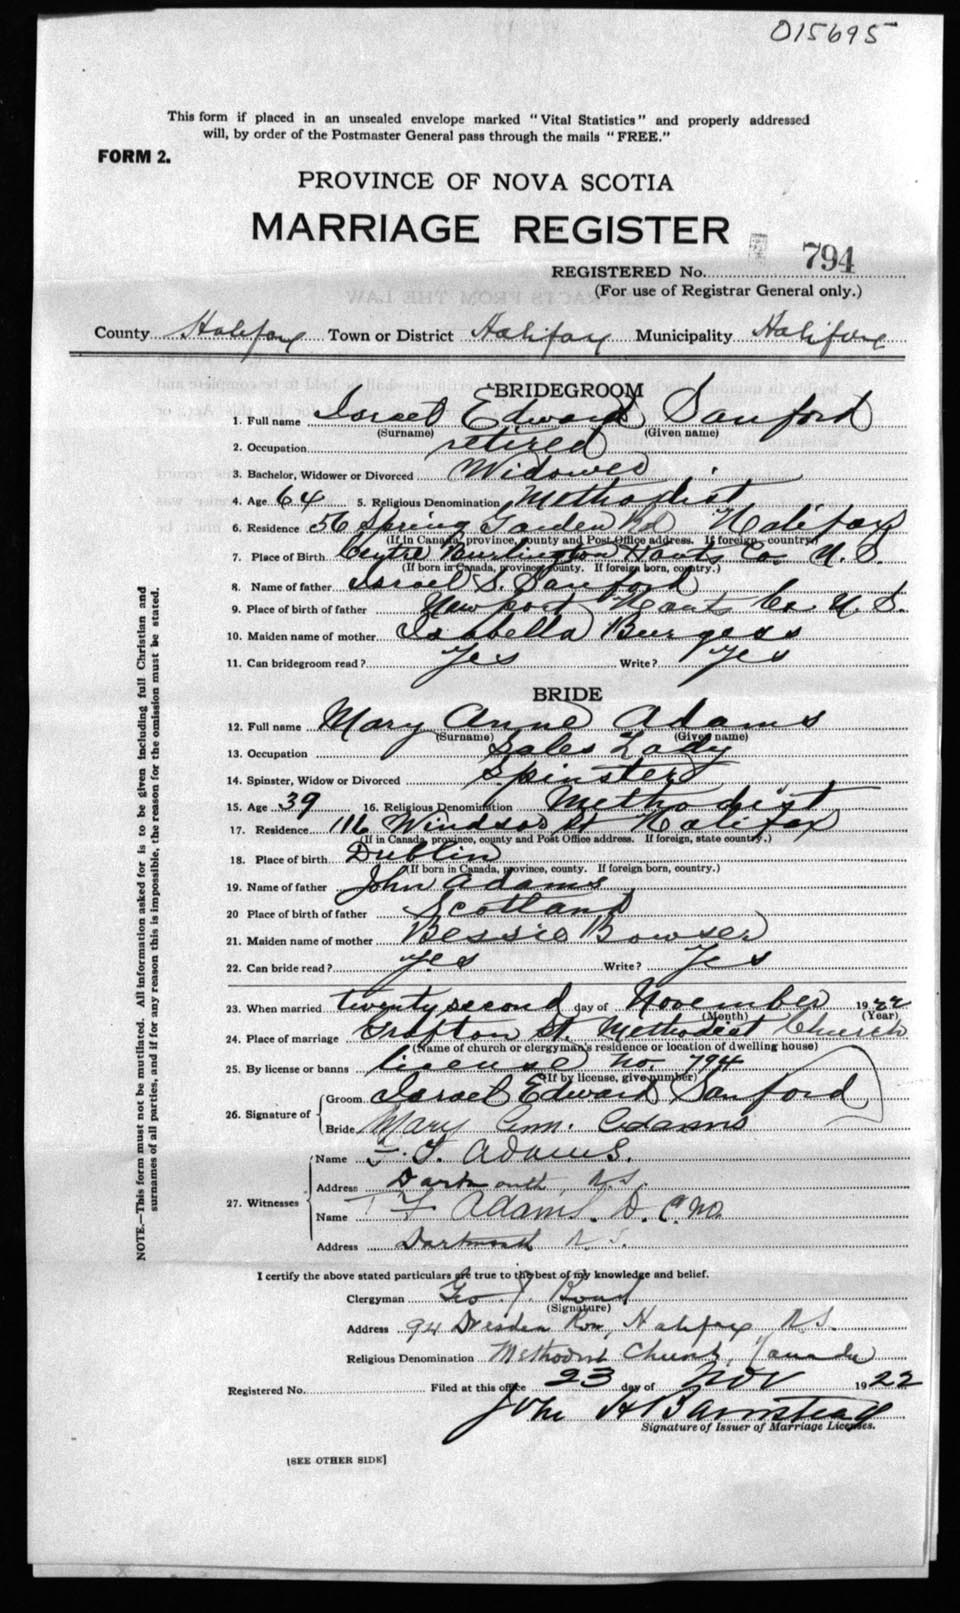 015695
This form if placed in an unsealed envelope marked "Vital Statistics" and properly addressed
will, by order of the Postmaster General pass through the mails "FREE."
FORM 2.
PROVINCE OF NOVA SCOTIA
MARRIAGE REGISTER
REGISTERED No. 794
(For use of Registrar General only.)
County Halifax Town or District Halifax Municipality Halifax
BRIDEGROOM
1. Full name Israel Edward Sanford
(Surname) (Given name)
2. Occupation retired
3. Bachelor, Widower or Divorced Widower
4. Age 64 5. Religious Denomination Methodist
6. Residence 56 Spring Garden Rd Halifax
(If in Canada, province, county and Post Office address. If foreign, country)
7. Place of Birth Centre Burlington Hants Co. N.S.
(If born in Canada, province county. If foreign born, country.)
8. Name of father Israel S. Sanford
9. Place of birth of father Newport Hants Co N.S.
10. Maiden name of mother Isabella Burgess
11. Can bridegroom read? Yes Write? Yes
BRIDE
12. Full name Mary Anne Adams
(Surname) (Given name)
13. Occupation Sales Lady
14. Spinster, Widow or Divorced Spinster
15. Age 39 16. Religious Denomination Methodist
17. Residence 116 Windsor St Halifax
(If in Canada, province, county and Post Office address. If foreign, state country.)
18. Place of birth Dublin
(If born in Canada, province, county. If foreign born, country.)
19. Name of father John Adams
20 Place of birth of father Scotland
21. Maiden name of mother Bessie Bowser
22. Can bride read? Yes Write? Yes
23. When married twenty second day of November 1922
(Month) (Year)
24. Place of marriage Grafton St. Methodist Church
(Name of church or clergyman's residence or location of dwelling house)
25. By license or banns license no. 794
(If by license, give number)
26. Signature of
Groom Israel Edward Sanford
Bride Mary Ann. Adams
27. Witnesses
Name F. T. Adams.
Address Dartmouth, N.S.
Name Adams.
Address Dartmouth N.S.
I certify the above stated particulars are true to the best of my knowledge and belief.
Clergyman Geo. J. Bond
(Signature)
Address 94 Dresden Row, Halifax N.S.
Religious Denomination Methodist Church, Canada
Registered No. Filed at this office 23 day of Nov 1922
John H Barnstead
Signature of Issuer of Marriage Licenses.
[SEE OTHER SIDE]
NOTE.—This form must not be mutilated. All information asked for is to be given including full Christian and
surnames of all parties, and if for any reason this is impossible, the reason for the omission must be stated.